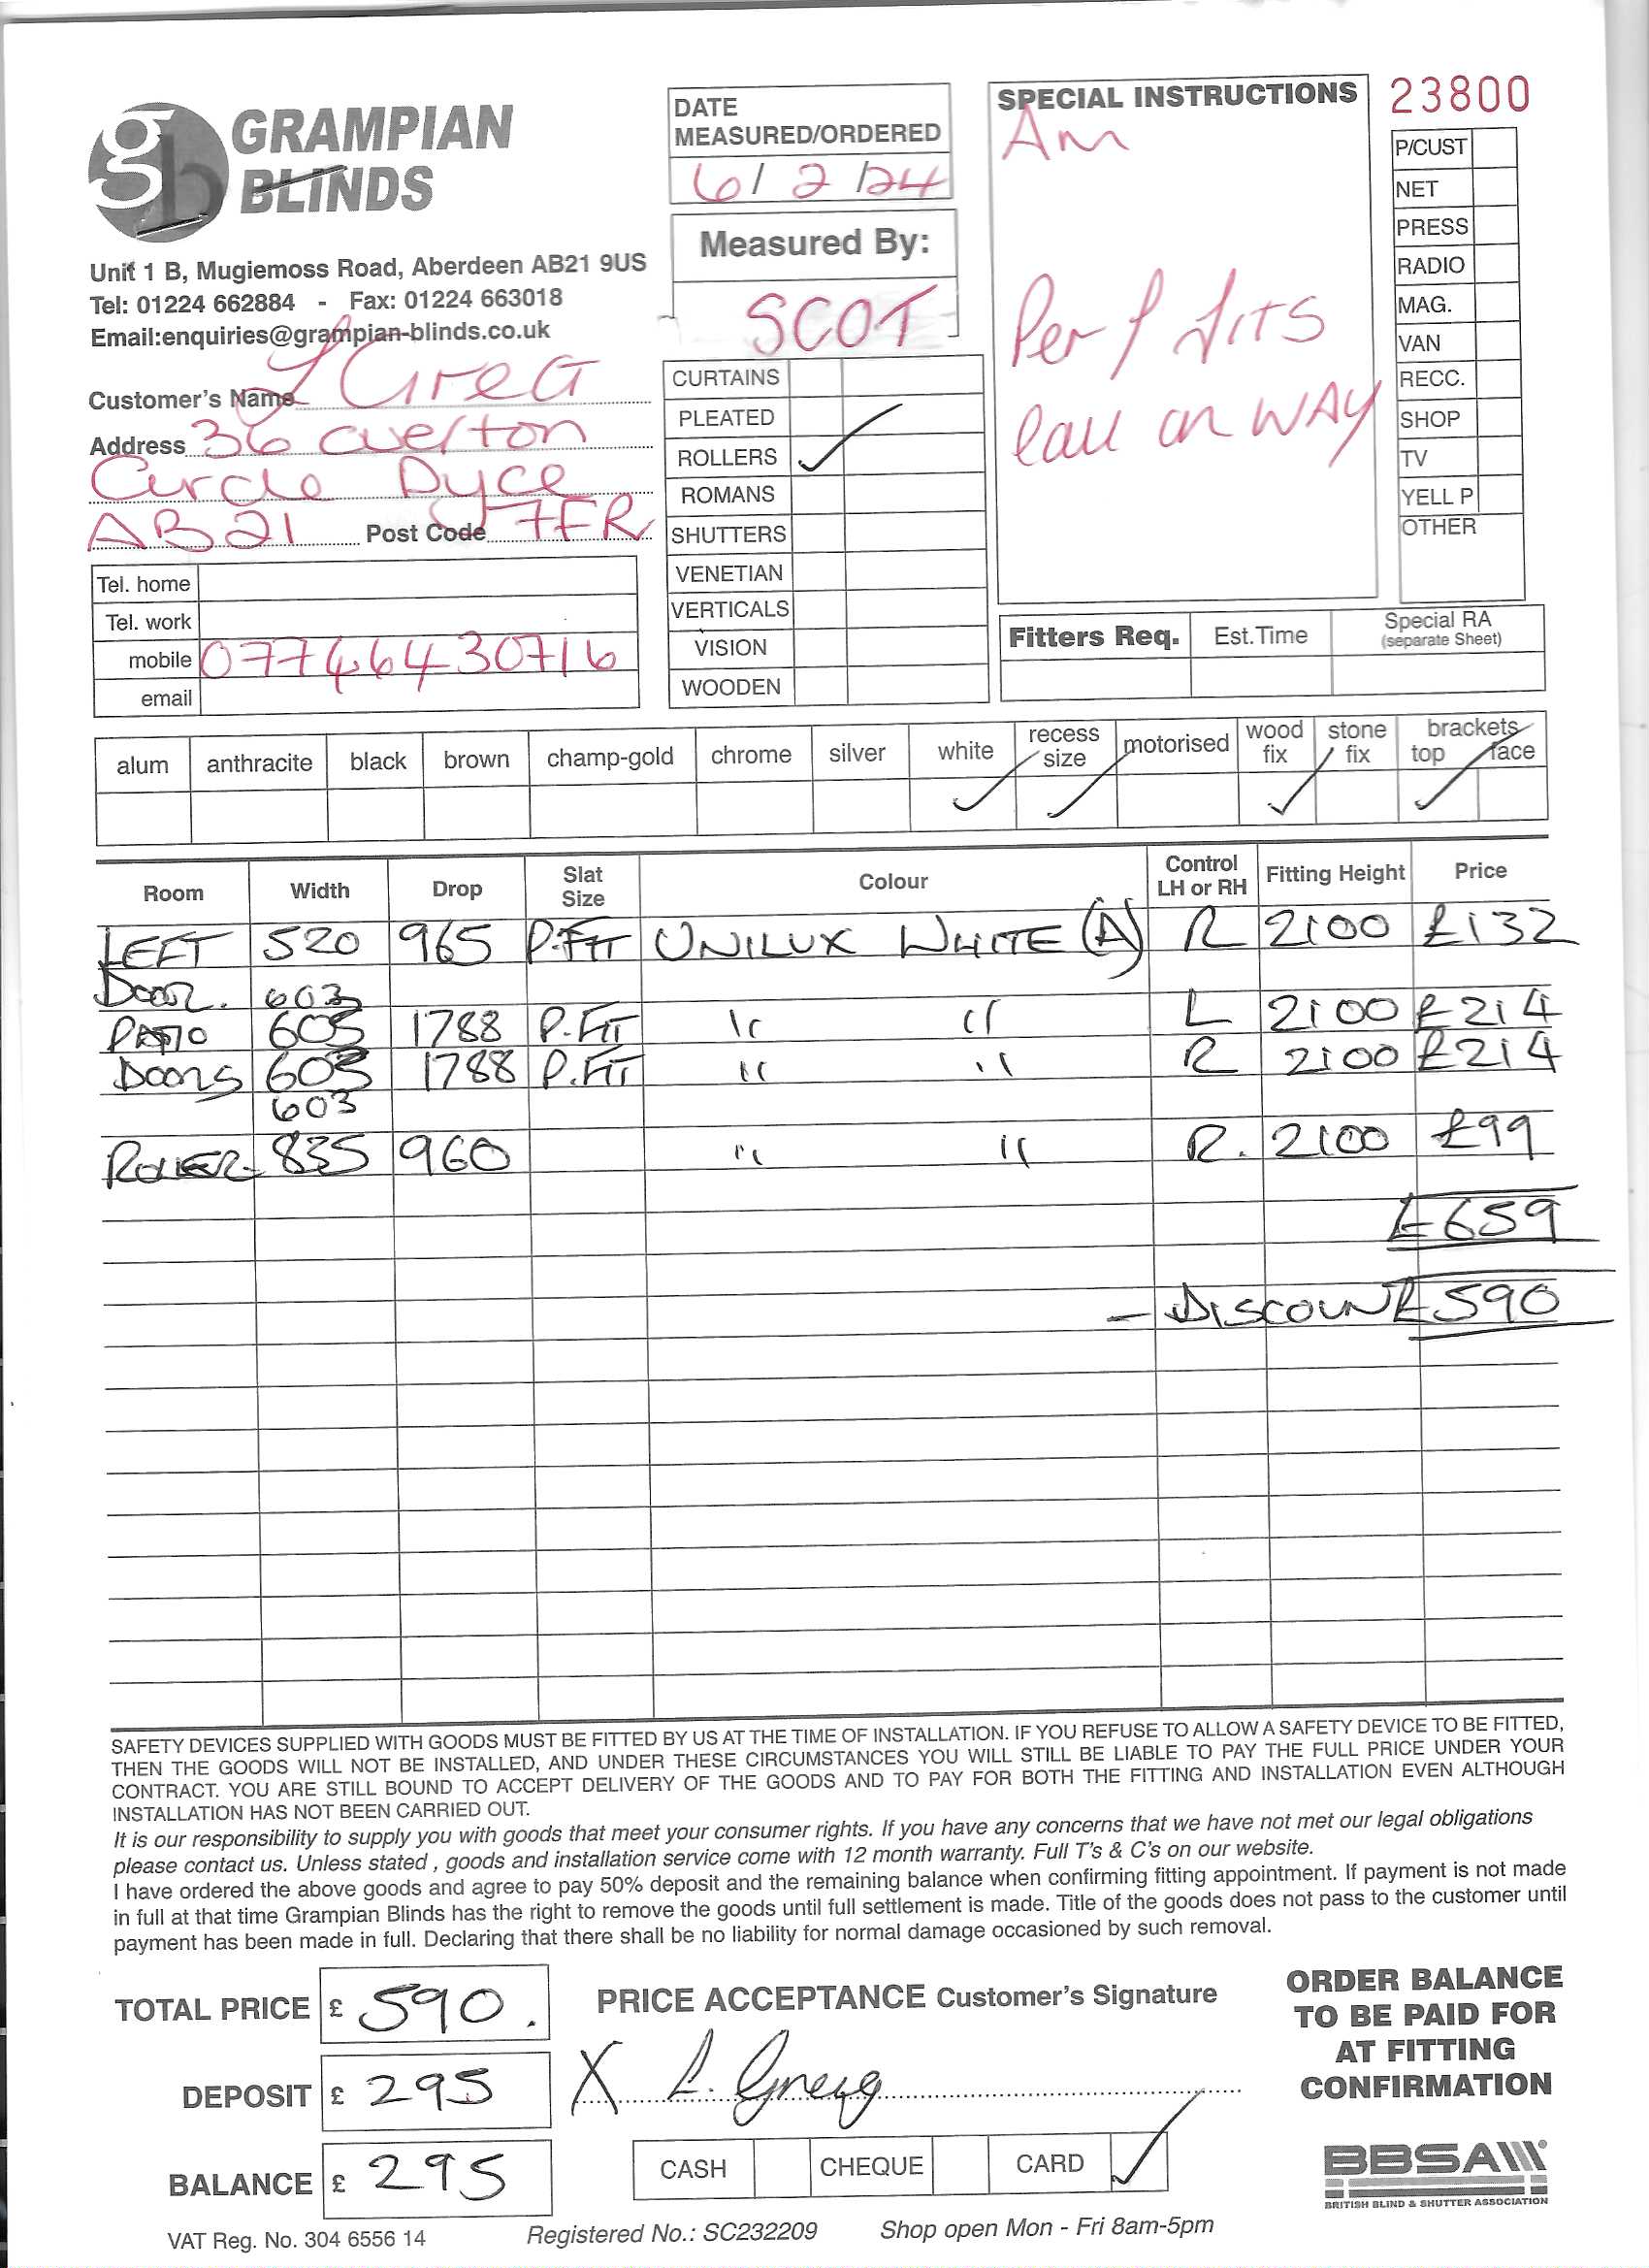 GRAMPIAN
BLINDS
gb
Unit 1 B, Mugiemoss Road, Aberdeen AB21 9US
Tel: 01224 662884 - Fax: 01224 663018
Email:enquiries@grampian-blinds.co.uk
Customer's Name L Greig
Address 36 Overton
Circle Dyce
AB21 Post Code 7FR
Tel. home
Tel. work
mobile 07746430716
email
DATE
MEASURED/ORDERED
6/2/24
Measured By:
SCOT
CURTAINS
PLEATED
ROLLERS ✓
ROMANS
SHUTTERS
VENETIAN
VERTICALS
VISION
WOODEN
SPECIAL INSTRUCTIONS
Am
Perf fits
Call on WAY
23800
P/CUST
NET
PRESS
RADIO
MAG.
VAN
RECC.
SHOP
TV
YELL P
OTHER
Fitters Req. Est.Time Special RA
(separate Sheet)
alum anthracite black brown champ-gold chrome silver white recess size motorised wood fix stone fix brackets top face
✓ ✓ ✓ ✓
Room Width Drop Slat Size Colour Control LH or RH Fitting Height Price
LEFT 520 965 P.FIT UNILUX WHITE (A) R 2100 £132
DOOR. 603
PATIO 605 1788 P.FIT " " L 2100 £214
DOORS 603 1788 P.FIT " " R 2100 £214
603
ROLLER 835 960 " " R. 2100 £99
£659
- DISCOUNT £590
SAFETY DEVICES SUPPLIED WITH GOODS MUST BE FITTED BY US AT THE TIME OF INSTALLATION. IF YOU REFUSE TO ALLOW A SAFETY DEVICE TO BE FITTED,
THEN THE GOODS WILL NOT BE INSTALLED, AND UNDER THESE CIRCUMSTANCES YOU WILL STILL BE LIABLE TO PAY THE FULL PRICE UNDER YOUR
CONTRACT. YOU ARE STILL BOUND TO ACCEPT DELIVERY OF THE GOODS AND TO PAY FOR BOTH THE FITTING AND INSTALLATION EVEN ALTHOUGH
INSTALLATION HAS NOT BEEN CARRIED OUT.
It is our responsibility to supply you with goods that meet your consumer rights. If you have any concerns that we have not met our legal obligations
please contact us. Unless stated , goods and installation service come with 12 month warranty. Full T's & C's on our website.
I have ordered the above goods and agree to pay 50% deposit and the remaining balance when confirming fitting appointment. If payment is not made
in full at that time Grampian Blinds has the right to remove the goods until full settlement is made. Title of the goods does not pass to the customer until
payment has been made in full. Declaring that there shall be no liability for normal damage occasioned by such removal.
TOTAL PRICE £ 590.
DEPOSIT £ 295
BALANCE £ 295
PRICE ACCEPTANCE Customer's Signature
X L. Greig
CASH CHEQUE CARD ✓
ORDER BALANCE
TO BE PAID FOR
AT FITTING
CONFIRMATION
BBSA
BRITISH BLIND & SHUTTER ASSOCIATION
VAT Reg. No. 304 6556 14 Registered No.: SC232209 Shop open Mon - Fri 8am-5pm